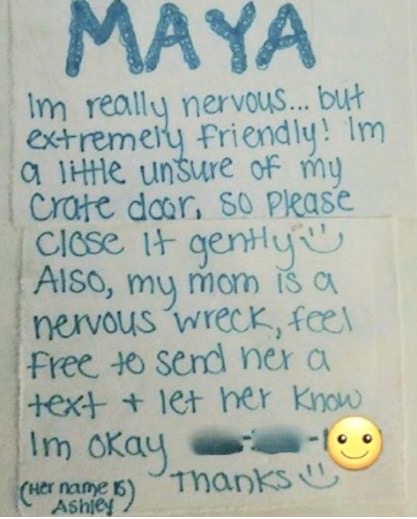 MAYA
Im really nervous... but
extremely friendly! Im
a little unsure of my
crate door, so please
close it gently
Also, my mom is a
nervous wreck, feel
free to send her a
text + let her know
Im okay
Thanks
(Her name is)
Ashley